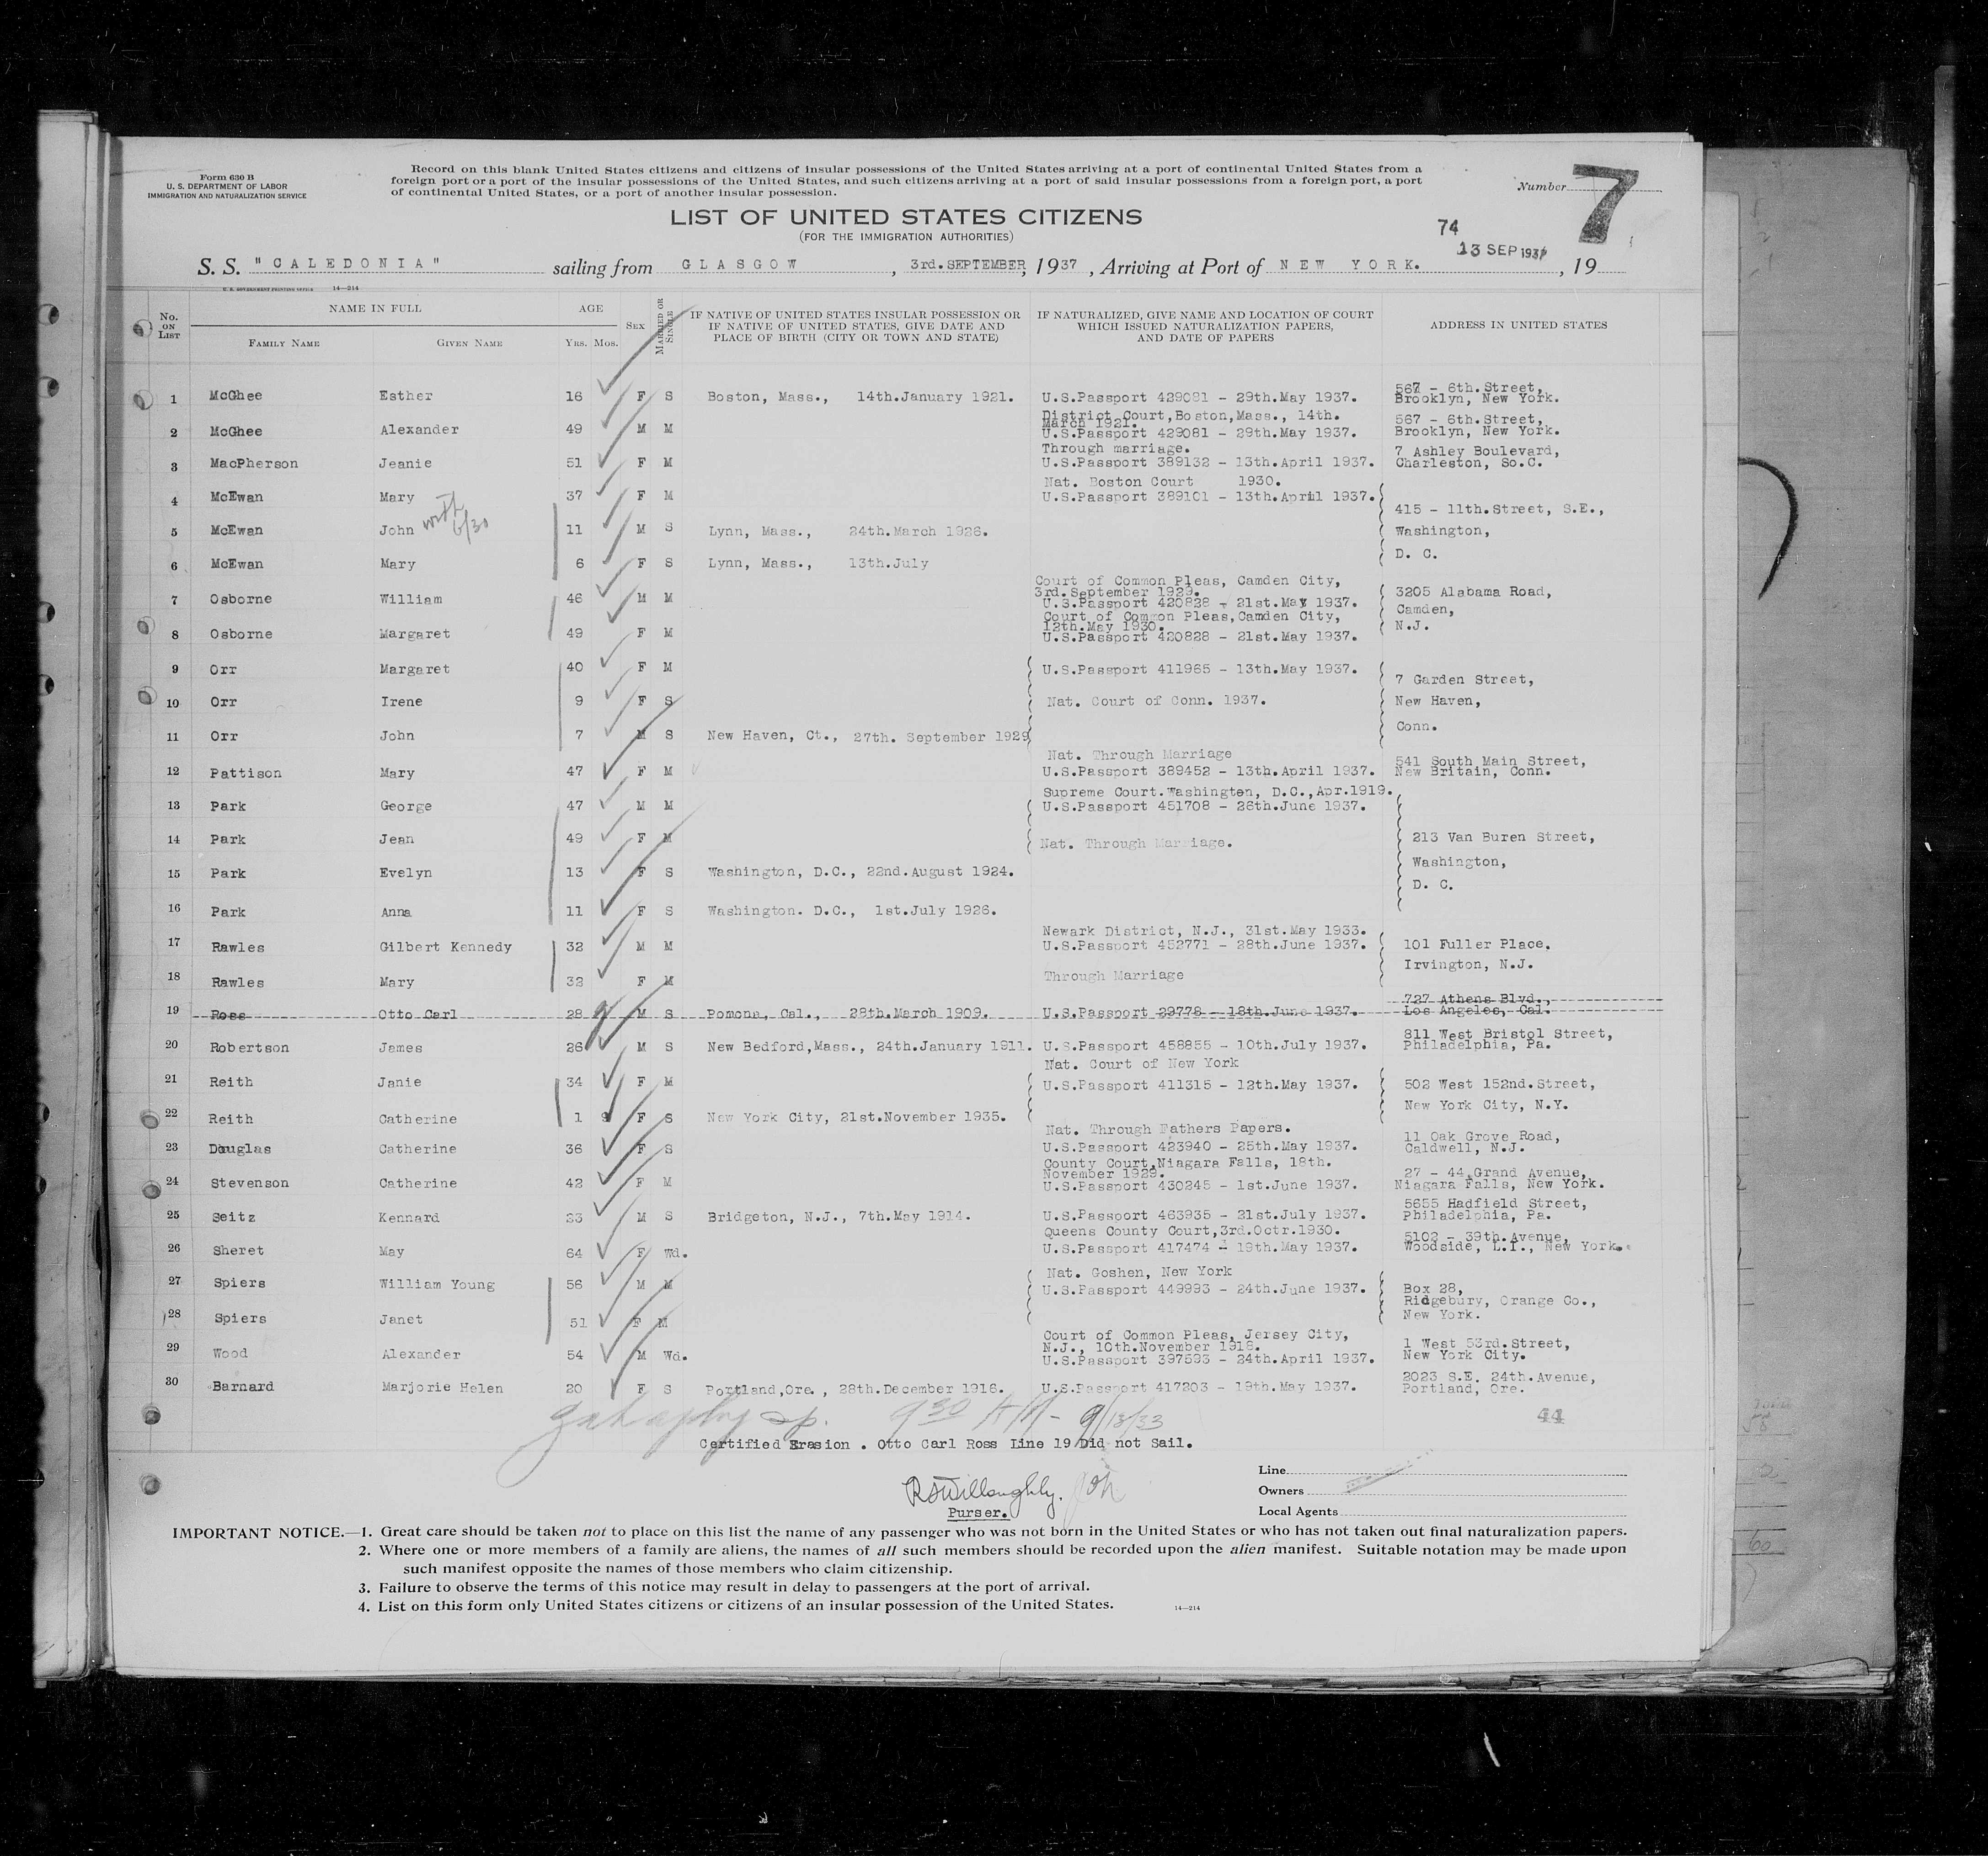 Form 630 B
U. S. DEPARTMENT OF LABOR
IMMIGRATION AND NATURALIZATION SERVICE
Record on this blank United States citizens and citizens of insular possessions of the United States arriving at a port of continental United States from a
foreign port or a port of the insular possessions of the United States, and such citizens arriving at a port of said insular possessions from a foreign port, a port
of continental United States, or a port of another insular possession.
Number 7
LIST OF UNITED STATES CITIZENS
(FOR THE IMMIGRATION AUTHORITIES)
74
13 SEP 1937
S. S. "CALEDONIA" sailing from GLASGOW, 3rd.SEPTEMBER, 1937, Arriving at Port of NEW YORK. , 19
U. S. GOVERNMENT PRINTING OFFICE 14—214
No. ON LIST NAME IN FULL AGE SEX MARRIED OR SINGLE IF NATIVE OF UNITED STATES INSULAR POSSESSION OR IF NATIVE OF UNITED STATES, GIVE DATE AND PLACE OF BIRTH (CITY OR TOWN AND STATE) IF NATURALIZED, GIVE NAME AND LOCATION OF COURT WHICH ISSUED NATURALIZATION PAPERS, AND DATE OF PAPERS ADDRESS IN UNITED STATES
FAMILY NAME GIVEN NAME YRS. MOS.
567 - 6th.Street,
1 McGhee Esther 16 F S Boston, Mass., 14th.January 1921. U.S.Passport 429081 - 29th.May 1937. Brooklyn, New York.
District Court,Boston,Mass., 14th.
March 1921. 567 - 6th.Street,
2 McGhee Alexander 49 M M U.S.Passport 429081 - 29th.May 1937. Brooklyn, New York.
Through marriage. 7 Ashley Boulevard,
3 MacPherson Jeanie 51 F M U.S.Passport 389132 - 13th.April 1937. Charleston, So.C.
Nat. Boston Court 1930.
4 McEwan Mary 37 F M U.S.Passport 389101 - 13th.April 1937.
with 6/30 415 - 11th.Street, S.E.,
5 McEwan John 11 M S Lynn, Mass., 24th.March 1926. Washington,
D. C.
6 McEwan Mary 6 F S Lynn, Mass., 13th.July
Court of Common Pleas, Camden City,
3rd.September 1929. 3205 Alabama Road,
7 Osborne William 46 M M U.S.Passport 420828 - 21st.May 1937.
Court of Common Pleas,Camden City, Camden,
12th.May 1930. N.J.
8 Osborne Margaret 49 F M U.S.Passport 420828 - 21st.May 1937.
9 Orr Margaret 40 F M U.S.Passport 411965 - 13th.May 1937.
7 Garden Street,
10 Orr Irene 9 F S Nat. Court of Conn. 1937. New Haven,
Conn.
11 Orr John 7 M S New Haven, Ct., 27th. September 1929
Nat. Through Marriage 541 South Main Street,
12 Pattison Mary 47 F M U.S.Passport 389452 - 13th.April 1937. New Britain, Conn.
Supreme Court.Washington, D.C.,Apr.1919.
13 Park George 47 M M U.S.Passport 451708 - 26th.June 1937.
14 Park Jean 49 F M Nat. Through Marriage. 213 Van Buren Street,
Washington,
15 Park Evelyn 13 F S Washington, D.C., 22nd.August 1924.
D. C.
16 Park Anna 11 F S Washington. D.C., 1st.July 1926.
Newark District, N.J., 31st.May 1933.
17 Rawles Gilbert Kennedy 32 M M U.S.Passport 452771 - 28th.June 1937. 101 Fuller Place.
Irvington, N.J.
18 Rawles Mary 32 F M Through Marriage
727 Athens Blvd.,
19 Ross Otto Carl 28 M S Pomona, Cal., 28th.March 1909. U.S.Passport 29778 - 18th.June 1937. Los Angeles, Cal.
811 West Bristol Street,
20 Robertson James 26 M S New Bedford,Mass., 24th.January 1911. U.S.Passport 458855 - 10th.July 1937. Philadelphia, Pa.
Nat. Court of New York
21 Reith Janie 34 F M U.S.Passport 411315 - 12th.May 1937. 502 West 152nd.Street,
New York City, N.Y.
22 Reith Catherine 1 9 F S New York City, 21st.November 1935.
Nat. Through Fathers Papers. 11 Oak Grove Road,
23 Douglas Catherine 36 F S U.S.Passport 423940 - 25th.May 1937. Caldwell, N.J.
County Court,Niagara Falls, 18th.
November 1929. 27 - 44,Grand Avenue,
24 Stevenson Catherine 42 F M U.S.Passport 430245 - 1st.June 1937. Niagara Falls, New York.
5655 Hadfield Street,
25 Seitz Kennard 23 M S Bridgeton, N.J., 7th.May 1914. U.S.Passport 463935 - 21st.July 1937. Philadelphia, Pa.
Queens County Court,3rd.Octr.1930. 5102 - 39th.Avenue,
26 Sheret May 64 F Wd. U.S.Passport 417474 - 19th.May 1937. Woodside, L.I., New York.
Nat. Goshen, New York
27 Spiers William Young 56 M M U.S.Passport 449993 - 24th.June 1937. Box 28,
Ridgebury, Orange Co.,
28 Spiers Janet 51 F M New York.
Court of Common Pleas, Jersey City,
N.J., 10th.November 1918. 1 West 53rd.Street,
29 Wood Alexander 54 M Wd. U.S.Passport 397593 - 24th.April 1937. New York City.
2023 S.E. 24th.Avenue,
30 Barnard Marjorie Helen 20 F S Portland,Ore., 28th.December 1916. U.S.Passport 417203 - 19th.May 1937. Portland, Ore.
9 30 AM - 9/13/33
44
Certified Erasion . Otto Carl Ross Line 19 Did not Sail.
RSWilloughby.
Purser.
Line
Owners
Local Agents
IMPORTANT NOTICE.—1. Great care should be taken not to place on this list the name of any passenger who was not born in the United States or who has not taken out final naturalization papers.
2. Where one or more members of a family are aliens, the names of all such members should be recorded upon the alien manifest. Suitable notation may be made upon
such manifest opposite the names of those members who claim citizenship.
3. Failure to observe the terms of this notice may result in delay to passengers at the port of arrival.
4. List on this form only United States citizens or citizens of an insular possession of the United States.
14—214